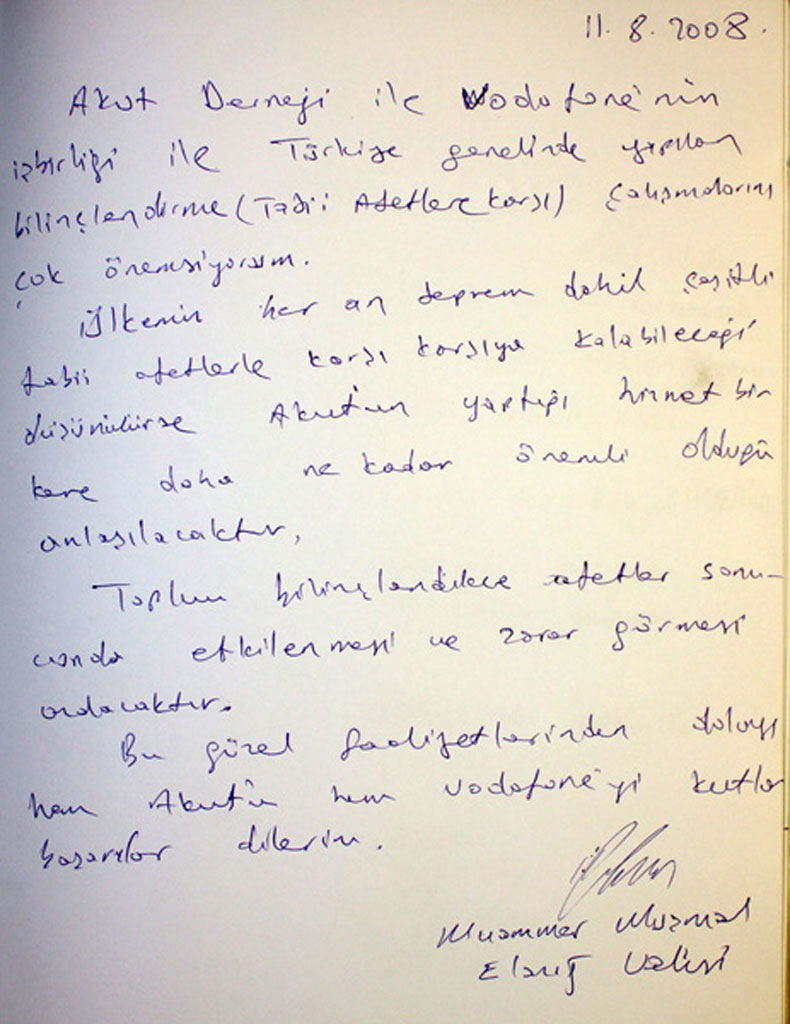 11.8.2008.
Akut Derneği ile Vodofone'nin
işbirliği ile Türkiye genelinde yapılan
bilinçlendirme (Tabii Afetlere karşı) çalışmalarını
çok önemsiyorum.
Ülkenin her an deprem dahil çeşitli
tabii afetlerle karşı karşıya kalabileceği
düşünülürse Akut'un yaptığı hizmet bir
kere daha ne kadar önemli olduğu
anlaşılacaktır,
Toplum bilinçlendikce afetler sonu-
cunda etkilenmesi ve zarar görmesi
azalacaktır.
Bu güzel faaliyetlerinden dolayı
hem Akut'u hem Vodofone'yi kutlar
başarılar dilerim.
Muammer Muşmal
Elazığ Valisi